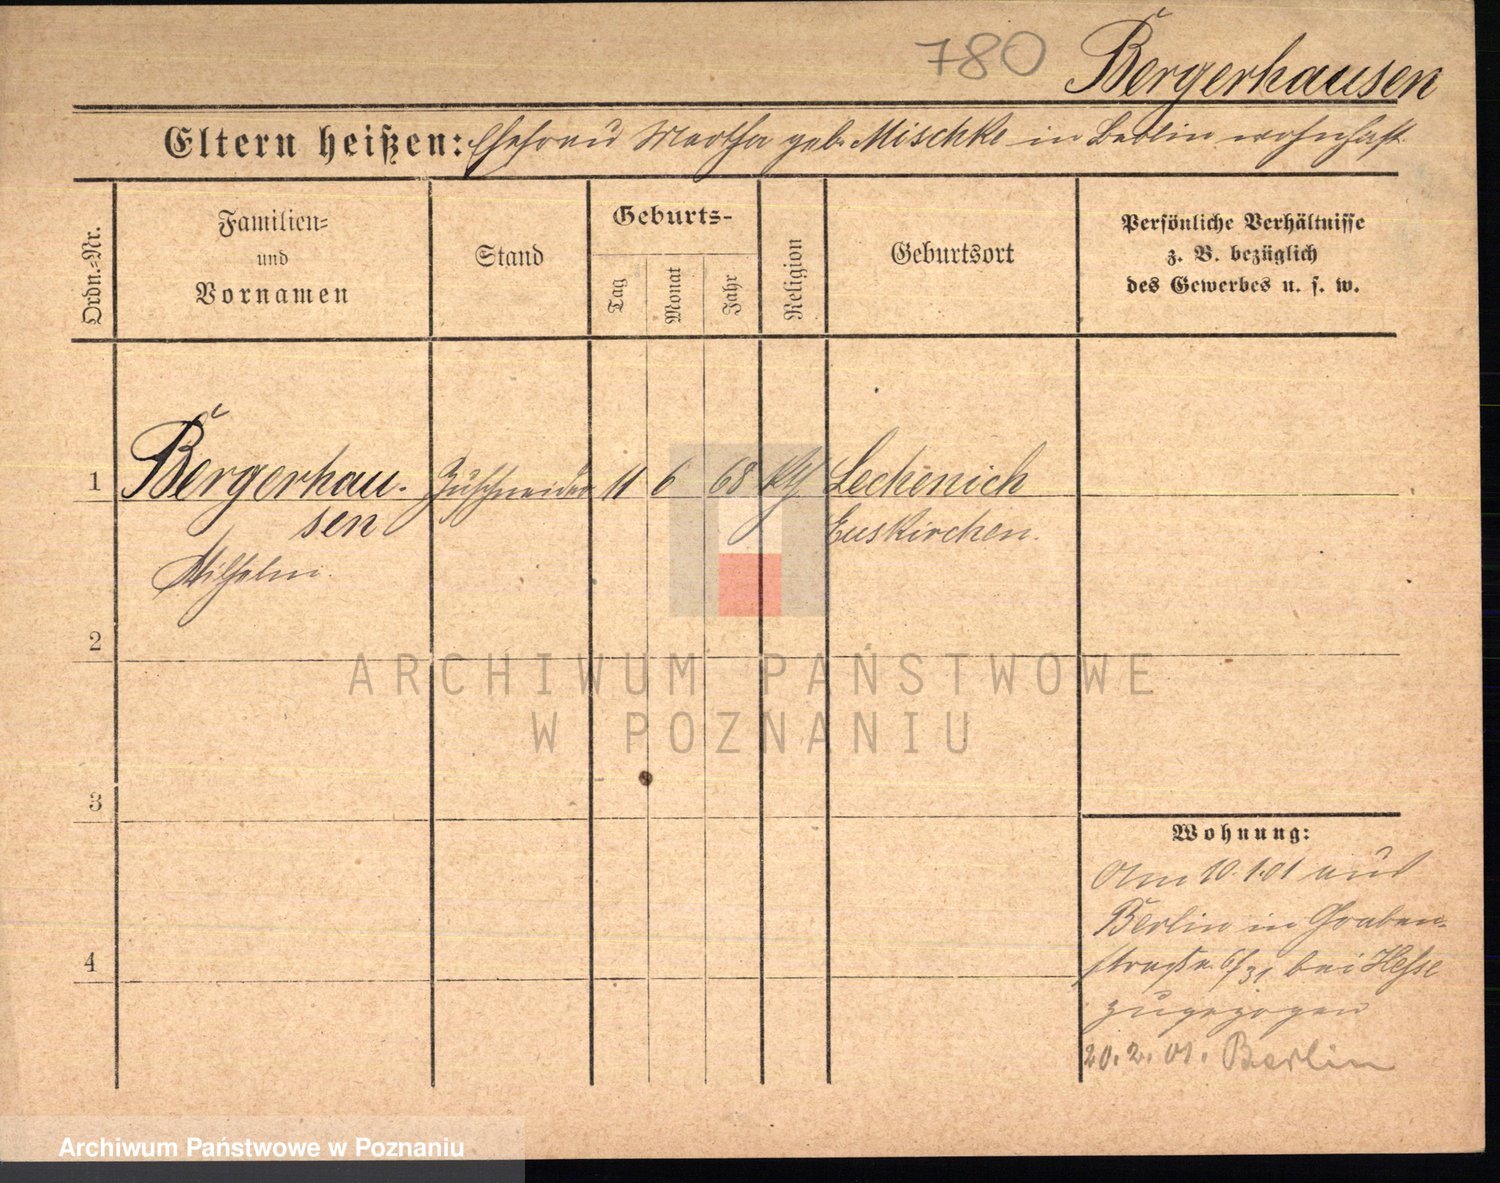 780 Bergerhausen
Eltern heißen: Ehefrau Martha geb. Mischke in Berlin wohnhaft
Ordn.-Nr.
Familien-
und
Vornamen
Stand
Geburts-
Tag
Monat
Jahr
Religion
Geburtsort
Persönliche Verhältnisse
z. B. bezüglich
des Gewerbes u. s. w.
1 Bergerhau- Zuschneider 11 6 68 Lechenich
sen Euskirchen.
Wilhelm.
2
ARCHIWUM PAŃSTWOWE
W POZNANIU
3
Wohnung:
Am 10.1.01 aus
Berlin in Graben-
straße 6/31 bei Hesse
4
zugezogen
20.2.01. Berlin
Archiwum Państwowe w Poznaniu